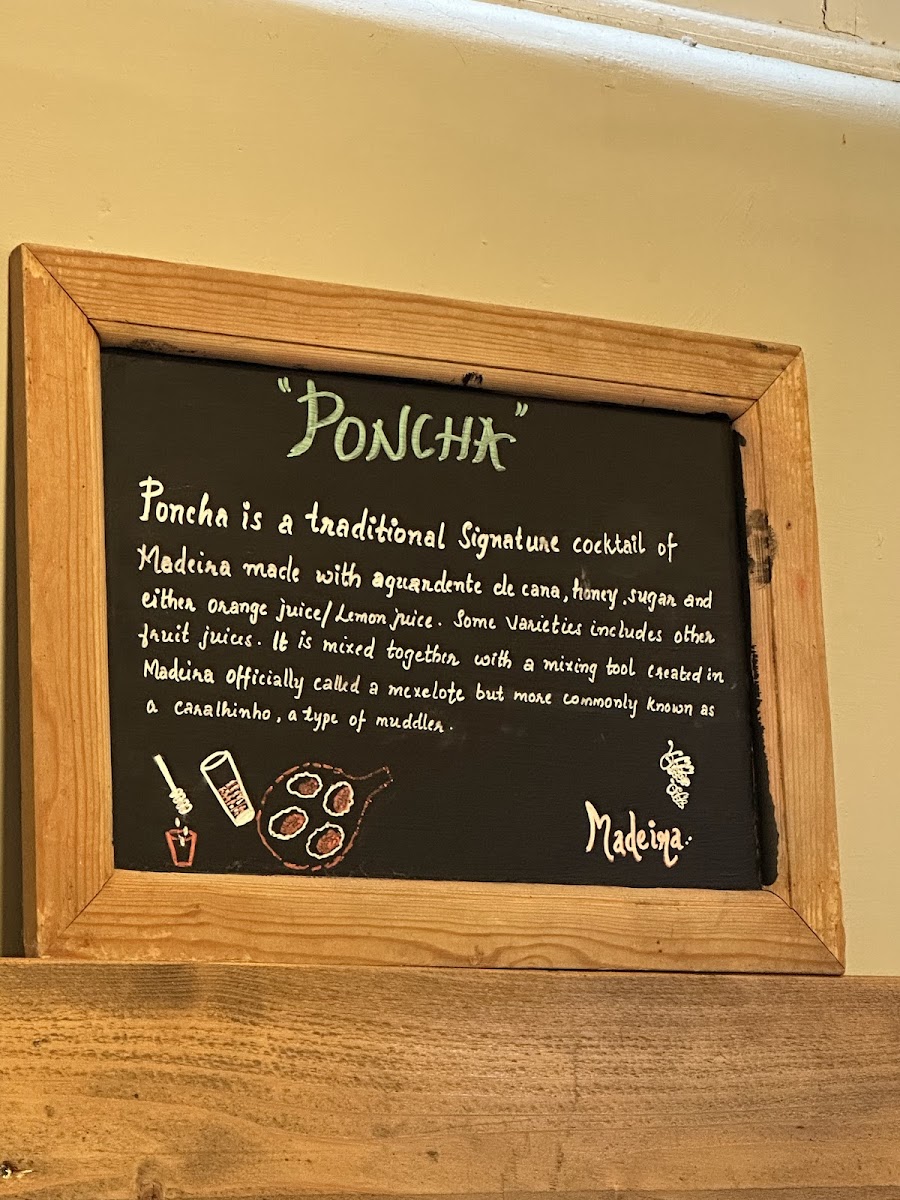 "PONCHA"
Poncha is a traditional Signature cocktail of
Madeira made with aguardente de cana, honey, sugar and
either orange juice/Lemon juice. Some Varieties includes other
fruit juices. It is mixed together with a mixing tool created in
Madeira officially called a mexelote but more commonly known as
a caralhinho, a type of muddler.
Madeira